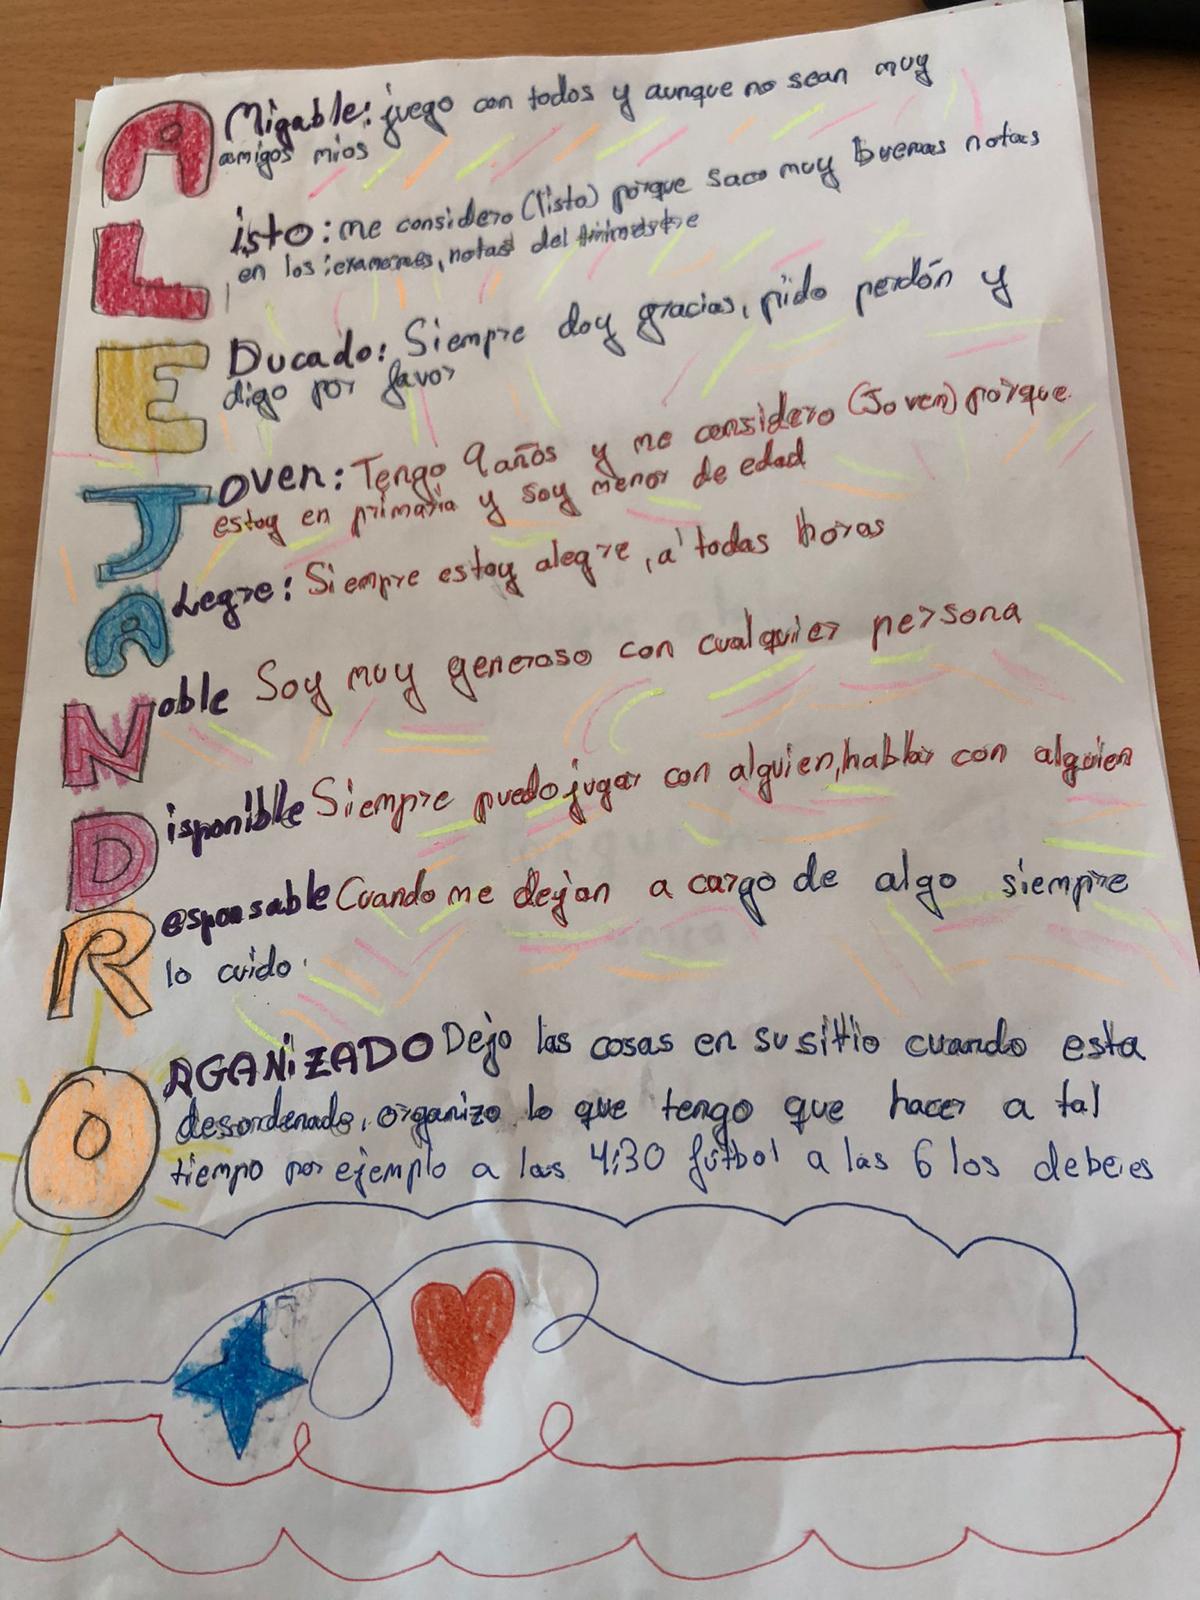 AMigable: juego con todos y aunque no sean muy
amigos mios
Listo: me considero (listo) porque saco muy buenas notas
en los examenes, notas del trimestre
EDucado: Siempre doy gracias, pido perdón y
digo por favor
Joven: Tengo 9 años y me considero (Joven) porque
estoy en primaria y soy menor de edad
ALegre: Siempre estoy alegre, a todas horas
Noble Soy muy generoso con cualquier persona
Disponible Siempre puedo jugar con alguien, hablar con alguien
Responsable Cuando me dejan a cargo de algo siempre
lo cuido.
ORGANiZADO Dejo las cosas en su sitio cuando esta
desordenado, organizo lo que tengo que hacer a tal
tiempo por ejemplo a las 4:30 fútbol a las 6 los deberes